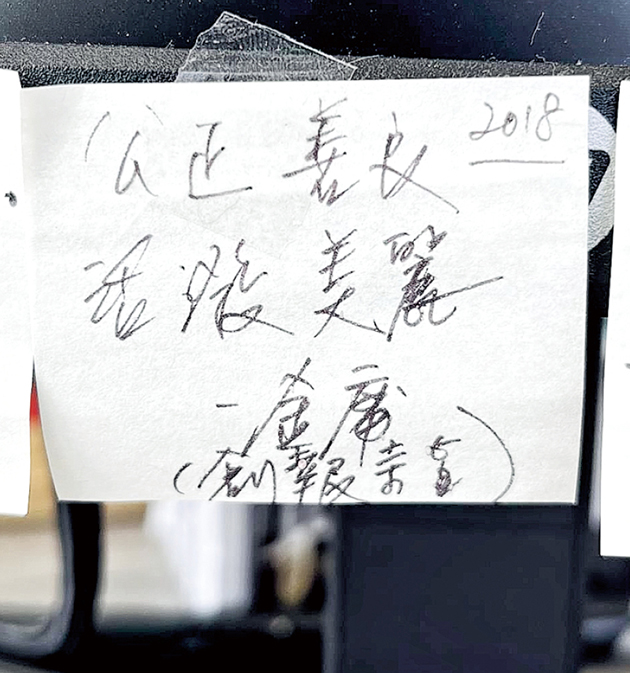 2018
公正 善良
活潑 美麗
—金庸
(創報宗旨)